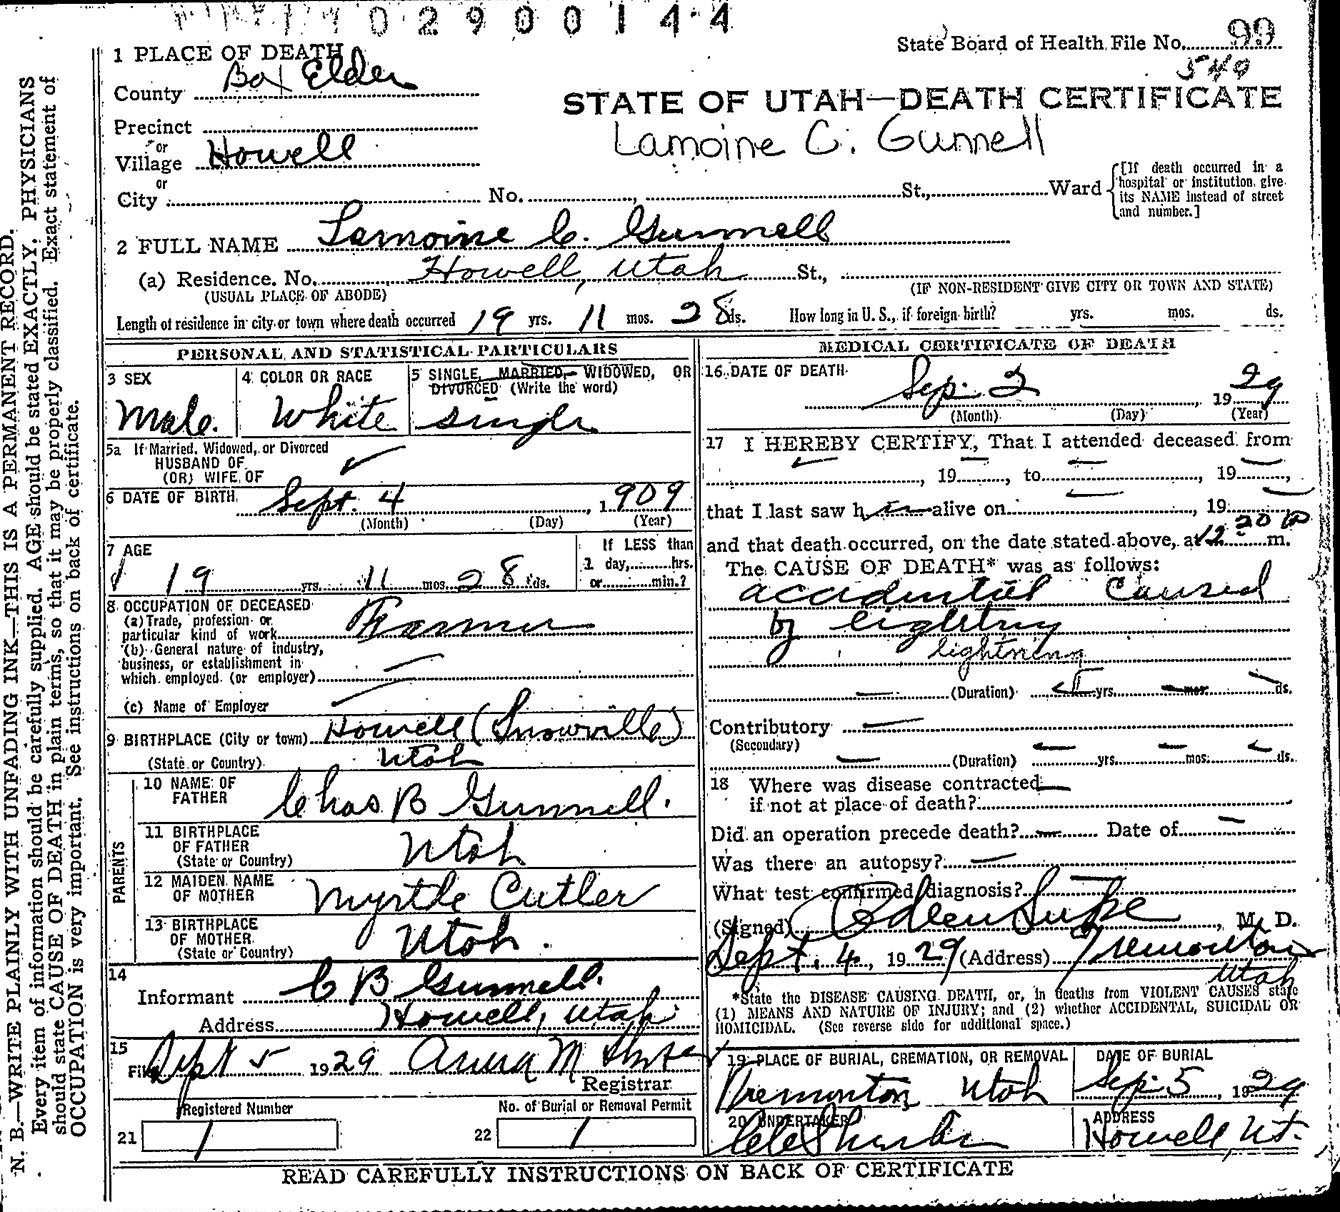 02900144
State Board of Health File No. 99
549
1 PLACE OF DEATH
County Box Elder
STATE OF UTAH—DEATH CERTIFICATE
Precinct
Lamoine C. Gunnell
or
Village Howell
or
City No. St., Ward
[If death occurred in a hospital or institution give its NAME instead of street and number.]
2 FULL NAME Lamoine C. Gunnell
(a) Residence. No. Howell, Utah St.,
(USUAL PLACE OF ABODE) (IF NON-RESIDENT GIVE CITY OR TOWN AND STATE)
Length of residence in city or town where death occurred 19 yrs. 11 mos. 28 ds. How long in U. S., if foreign birth? yrs. mos. ds.
PERSONAL AND STATISTICAL PARTICULARS
3 SEX
Male.
4 COLOR OR RACE
White
5 SINGLE, MARRIED, WIDOWED, OR DIVORCED (Write the word)
Single
5a If Married, Widowed, or Divorced
HUSBAND OF
(OR) WIFE OF
6 DATE OF BIRTH Sept. 4, 1909
(Month) (Day) (Year)
7 AGE
19 yrs. 11 mos. 28 ds.
If LESS than
1 day, hrs.
or min.?
8 OCCUPATION OF DECEASED
(a) Trade, profession or
particular kind of work Farmer
(b) General nature of industry,
business, or establishment in
which employed (or employer)
(c) Name of Employer
9 BIRTHPLACE (City or town) Howell (Snowville)
(State or Country) Utah
PARENTS
10 NAME OF
FATHER Chas B Gunnell.
11 BIRTHPLACE
OF FATHER
(State or Country) Utah
12 MAIDEN NAME
OF MOTHER Myrtle Cutler
13 BIRTHPLACE
OF MOTHER
(State or Country) Utah.
14
Informant C B Gunnell.
Address Howell, Utah
15
Filed Sept 5 1929
Registrar
Registered Number
21 1
No. of Burial or Removal Permit
22 1
MEDICAL CERTIFICATE OF DEATH
16 DATE OF DEATH
Sep. 2, 1929
(Month) (Day) (Year)
17 I HEREBY CERTIFY, That I attended deceased from
, 19 , to , 19 ,
that I last saw h alive on , 19
and that death occurred, on the date stated above, at 12 20 P m.
The CAUSE OF DEATH* was as follows:
accidental caused
by lightny
lightning
(Duration) yrs. mos. ds.
Contributory
(Secondary)
(Duration) yrs. mos. ds.
18 Where was disease contracted
if not at place of death?
Did an operation precede death? Date of
Was there an autopsy?
What test confirmed diagnosis?
(Signed) , M. D.
Sept. 4, 1929 (Address) Tremonton
Utah
*State the DISEASE CAUSING DEATH, or, in deaths from VIOLENT CAUSES state
(1) MEANS AND NATURE OF INJURY; and (2) whether ACCIDENTAL, SUICIDAL OR
HOMICIDAL. (See reverse side for additional space.)
19 PLACE OF BURIAL, CREMATION, OR REMOVAL
Tremonton Utah
DATE OF BURIAL
Sep. 5, 1929
20 UNDERTAKER
ADDRESS
Howell, Ut.
READ CAREFULLY INSTRUCTIONS ON BACK OF CERTIFICATE
N. B.—WRITE PLAINLY WITH UNFADING INK—THIS IS A PERMANENT RECORD.
Every item of information should be carefully supplied. AGE should be stated EXACTLY. PHYSICIANS
should state CAUSE OF DEATH in plain terms, so that it may be properly classified. Exact statement of
OCCUPATION is very important. See instructions on back of certificate.